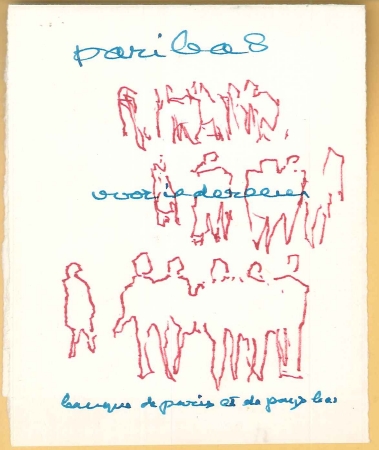 paribas
voor iedereen
banque de paris et de pays bas